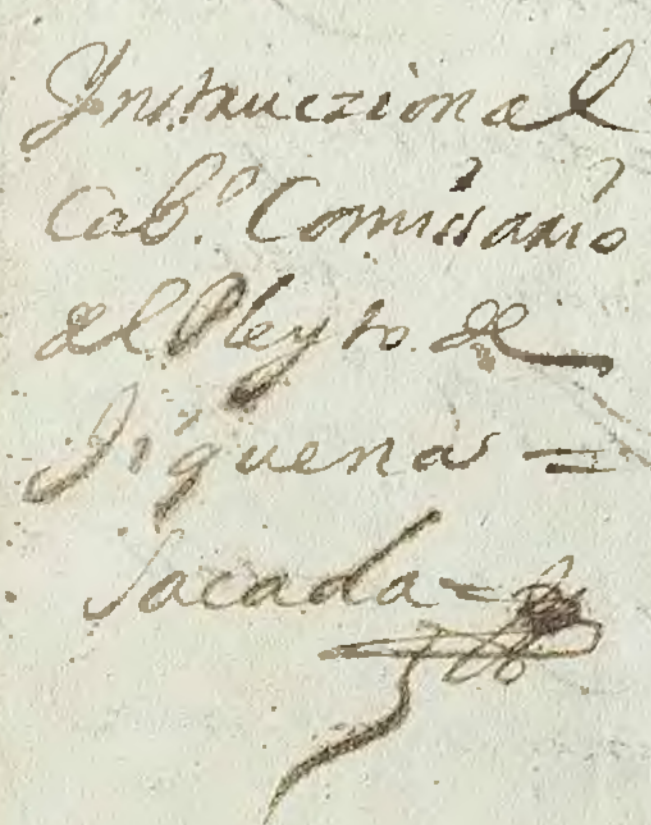 Instruczion al
Cab.º Comisario
del Pleyto de
Siguenas =
Sacada =